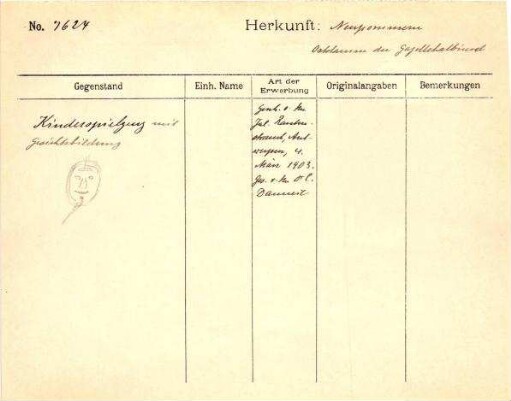 No. 7624
Herkunft: Neupommern
der Gazellehalbinsel
Gegenstand
Einh. Name
Art der Erwerbung
Originalangaben
Bemerkungen
Kinderspielzeug mit
Gesichtsbildung
Gesch. v. Hr.
Jul.
4.
März 1903.
Ges. v. Hr. O. C.
Dannert